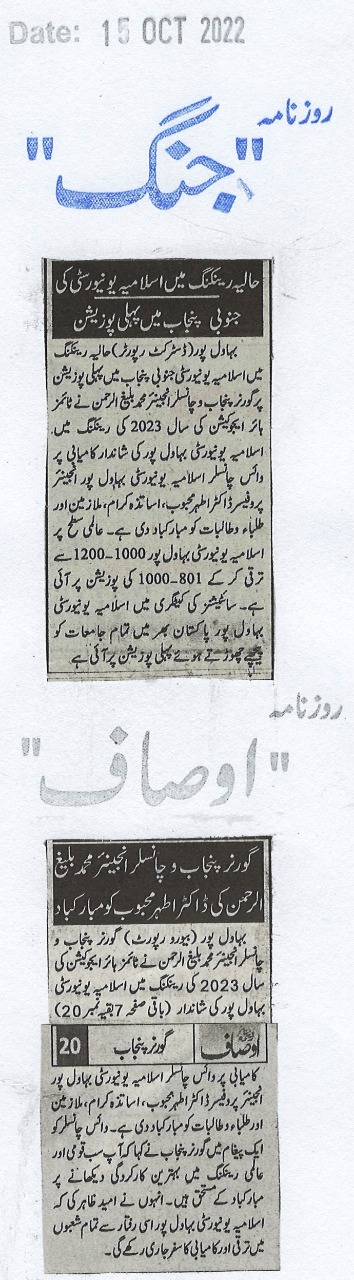 Date: 15 OCT 2022
روزنامہ
"جنگ"
حالیہ رینکنگ میں اسلامیہ یونیورسٹی کی
جنوبی پنجاب میں پہلی پوزیشن
بہاول پور (ڈسٹرکٹ رپورٹر) حالیہ رینکنگ
میں اسلامیہ یونیورسٹی جنوبی پنجاب میں پہلی پوزیشن
پر گورنر پنجاب و چانسلر انجینئر محمد بلیغ الرحمن نے ٹائمز
ہائر ایجوکیشن کی سال 2023 کی رینکنگ میں
اسلامیہ یونیورسٹی بہاول پور کی شاندار کامیابی پر
وائس چانسلر اسلامیہ یونیورسٹی بہاول پور انجینئر
پروفیسر ڈاکٹر اطہر محبوب، اساتذہ کرام، ملازمین اور
طلباء و طالبات کو مبارکباد دی ہے۔ عالمی سطح پر
اسلامیہ یونیورسٹی بہاول پور 1000-1200 سے
ترقی کر کے 801-1000 کی پوزیشن پر آئی
ہے۔ سائٹیشنز کی کیٹگری میں اسلامیہ یونیورسٹی
بہاول پور پاکستان بھر میں تمام جامعات کو
پیچھے چھوڑتے ہوئے پہلی پوزیشن پر آئی ہے
روزنامہ
"اوصاف"
گورنر پنجاب و چانسلر انجینئر محمد بلیغ
الرحمن کی ڈاکٹر اطہر محبوب کو مبارکباد
بہاول پور (بیورو رپورٹ) گورنر پنجاب و
چانسلر انجینئر محمد بلیغ الرحمن نے ٹائمز ہائر ایجوکیشن کی
سال 2023 کی رینکنگ میں اسلامیہ یونیورسٹی
بہاول پور کی شاندار (باقی صفحہ 7 بقیہ نمبر 20)
اوصاف گورنر پنجاب 20
کامیابی پر وائس چانسلر اسلامیہ یونیورسٹی بہاول پور
انجینئر پروفیسر ڈاکٹر اطہر محبوب، اساتذہ کرام، ملازمین
اور طلباء و طالبات کو مبارکباد دی ہے۔ وائس چانسلر کو
ایک پیغام میں گورنر پنجاب نے کہا کہ آپ سب قومی اور
عالمی رینکنگ میں بہترین کارکردگی دیکھانے پر
مبارکباد کے مستحق ہیں۔ انہوں نے امید ظاہر کی کہ
اسلامیہ یونیورسٹی بہاول پور اسی رفتار سے تمام شعبوں
میں ترقی اور کامیابی کا سفر جاری رکھے گی۔